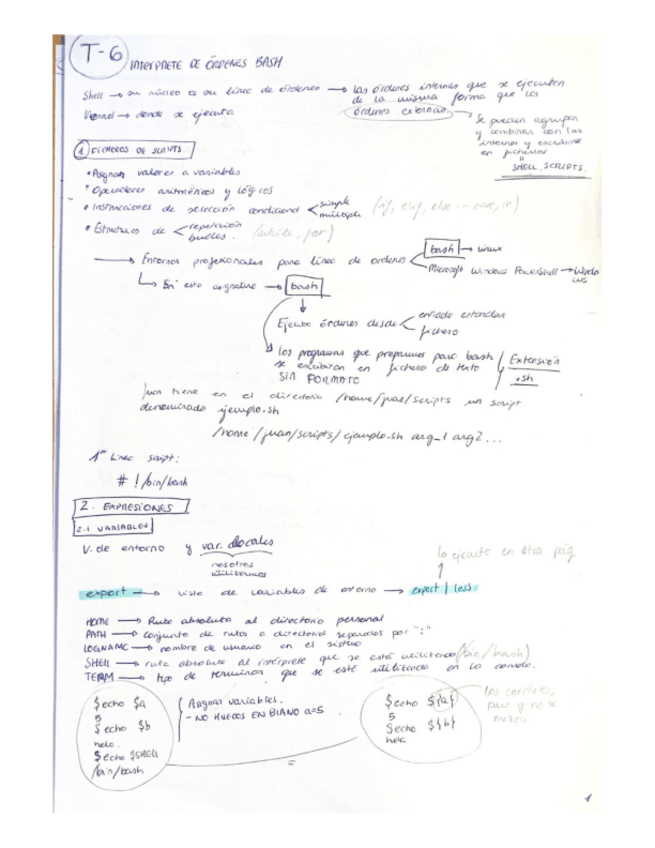 T-6 INTERPRETE DE ÓRDENES BASH
Shell → su núcleo es su línea de órdenes → las órdenes internas que se ejecutan
de la misma forma que las
órdenes externas
→ donde se ejecuta
Se pueden agrupar
y combinar con las
internas y escribirse
en ficheros
SHELL SCRIPTS.
1 FICHEROS DE SCRIPTS
• Asignan valores a variables
• Operadores aritméticos y lógicos
• Instrucciones de selección condicional < simple
múltiple
(if, elif, else - case, in)
• Estructuras de < repetición
bucles.
(while, for)
→ Entornos profesionales para línea de ordenes < bash → Linux
Microsoft Windows PowerShell → Windo
ws
↳ En esta asignatura → bash
Ejecuta órdenes desde < entrada estandar
fichero
los programas que preparamos para bash
se escribiran en fichero de texto
SIN FORMATO
Extensión
.sh
Juan tiene en el directorio /home/juan/scripts un script
denominado ejemplo.sh
/home/juan/scripts/ejemplo.sh arg_1 arg2 ...
1ª Linea script:
#!/bin/bash
2. EXPRESIONES
2.1 VARIABLES
V. de entorno y var. locales
nosotros
utilizamos
lo ejecuta en otra pág
export → vista de variables de entorno → export | less
HOME → Ruta absoluta al directorio personal
PATH → conjunto de rutas a directorios separados por ":"
LOGNAME → nombre de usuario en el sistema
SHELL → ruta absoluta al intérprete que se está utilizando (/bin/bash)
TERM → tipo de terminan que se esté utilizando en la consola.
$echo $a
5
$echo $b
hola.
$echo $SHELL
/bin/bash
Asignar variables.
- NO HUECOS EN BLANCO a=5
$echo ${a}
5
$echo ${b}
hola
los corchetes,
para q no se
=
1